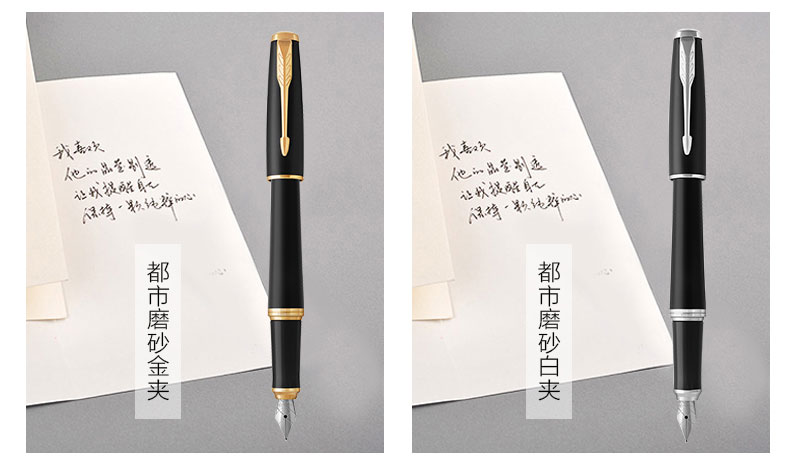 我喜欢
他的品莹剔透
让我提醒自己
保持一颗纯粹的心
都市磨砂金夹
我喜欢
他的品莹剔透
让我提醒自己
保持一颗纯粹的心
都市磨砂白夹